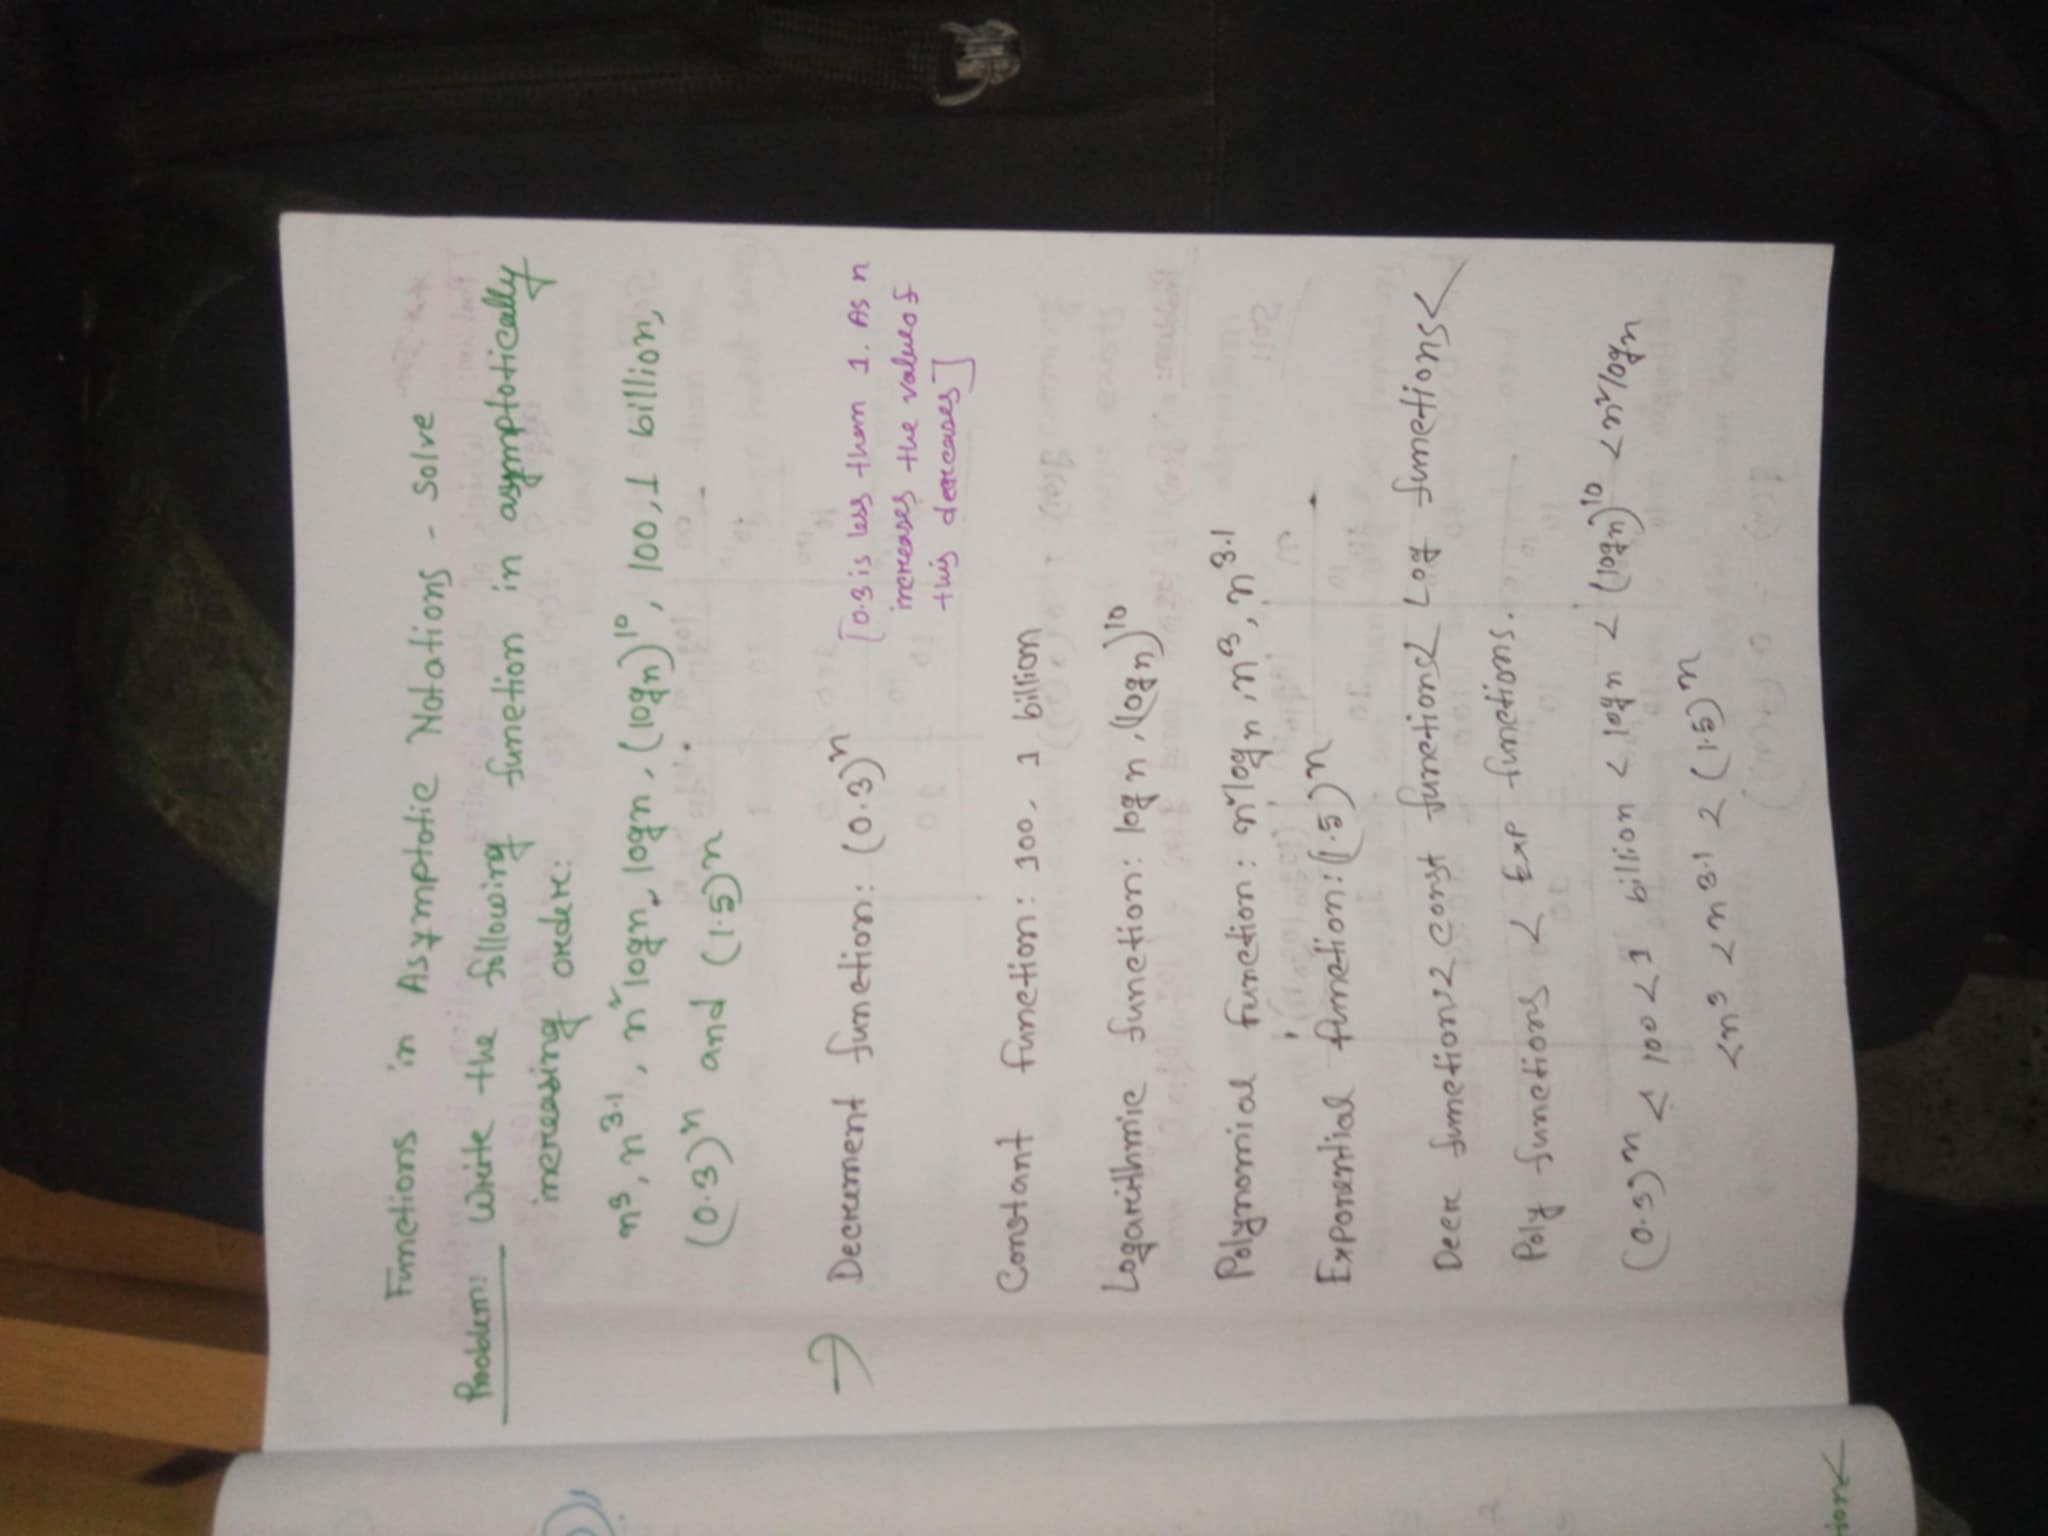 Functions in Asymptotic Notations - Solve
Problem: Write the following function in asymptotically
increasing order:
n³, n^3.1, n² log n, log n, (log n)^10, 100, 1 billion,
(0.3)^n and (1.5)^n
→ Decrement function: (0.3)^n [0.3 is less than 1. As n
increases the value of
this decreases]
Constant function: 100, 1 billion
Logarithmic function: log n, (log n)^10
Polynomial function: n² log n, n³, n^3.1
Exponential function: (1.5)^n
Decr functions < const functions < Log functions <
Poly functions < Exp functions.
(0.3)^n < 100 < 1 billion < log n < (log n)^10 < n² log n
< n³ < n^3.1 < (1.5)^n